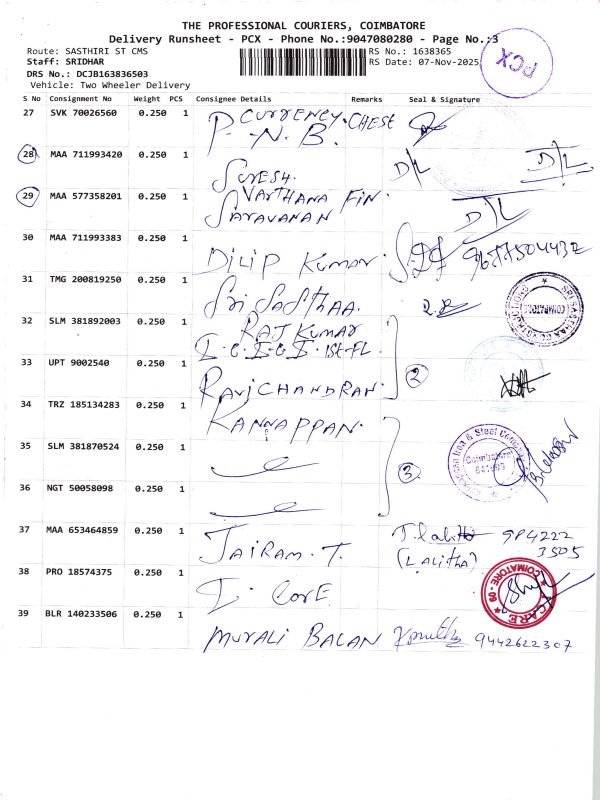 THE PROFESSIONAL COURIERS, COIMBATORE
Delivery Runsheet - PCX - Phone No.:9047080280 - Page No.:3
Route: SASTHIRI ST CMS
RS No.: 1638365
Staff: SRIDHAR
RS Date: 07-Nov-2025
DRS No.: DCJB163836503
Vehicle: Two Wheeler Delivery
PCX
S No Consignment No Weight PCS Consignee Details Remarks Seal & Signature
27 SVK 70026560 0.250 1 CURRENCY CHEST
P. N. B.
28 MAA 711993420 0.250 1 SURESH. D/L D/L
29 MAA 577358201 0.250 1 VARTHANA FIN.
SARAVANAN D/L
30 MAA 711993383 0.250 1 DILIP KUMAR. 9677504432
31 TMG 200819250 0.250 1 Sri SaSthaa.
32 SLM 381892003 0.250 1 RAJ KUMAR
I.C.I.C.I. 1st FL
33 UPT 9002540 0.250 1 RAVICHANDRAN. 2
34 TRZ 185134283 0.250 1 KANNAPPAN.
35 SLM 381870524 0.250 1
3
36 NGT 50058098 0.250 1
37 MAA 653464859 0.250 1 JAIRAM. T. T. Lalitha 984222
3505
(Lalitha)
38 PRO 18574375 0.250 1 I. CORE
39 BLR 140233506 0.250 1 MURALI BALAN 9442622307